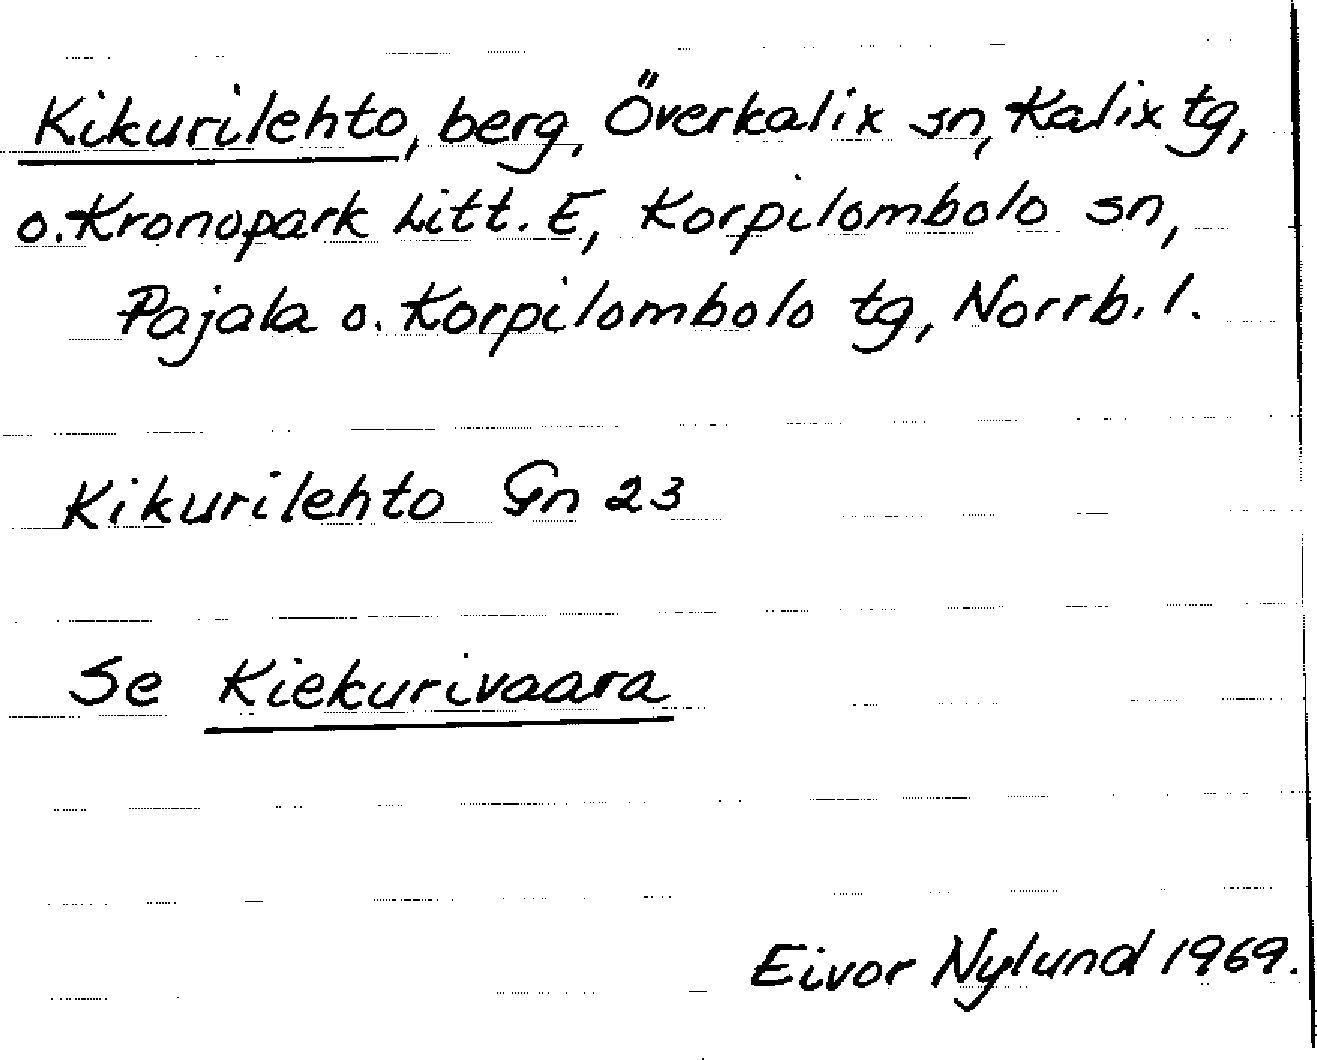 Kikurilehto, berg, Överkalix sn, Kalix tg,
o. Kronopark Litt. E, Korpilombolo sn,
Pajala o. Korpilombolo tg, Norrb. l.
Kikurilehto Gn 23
Se Kiekurivaara
Eivor Nylund 1969.